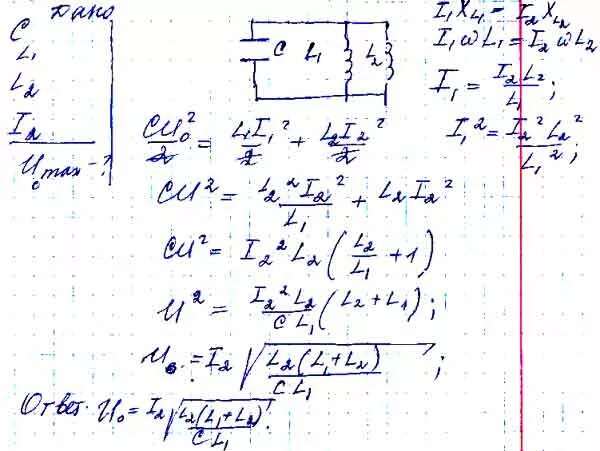 Дано
C
L₁
L₂
I₂
U₀ max - ?
C L₁ L₂
I₁ X_L₁ = I₂ X_L₂
I₁ω L₁ = I₂ ω L₂
I₁ = I₂ L₂ / L₁ ;
I₁² = I₂² L₂² / L₁² ;
CU₀²/2 = L₁I₁²/2 + L₂I₂²/2
CU² = L₂² I₂² / L₁ + L₂ I₂²
CU² = I₂² L₂ (L₂/L₁ + 1)
U² = I₂² L₂ / C L₁ (L₂ + L₁) ;
U₀ = I₂ √(L₂(L₁+L₂) / C L₁) ;
Ответ. U₀ = I₂ √(L₂(L₁+L₂) / C L₁) .